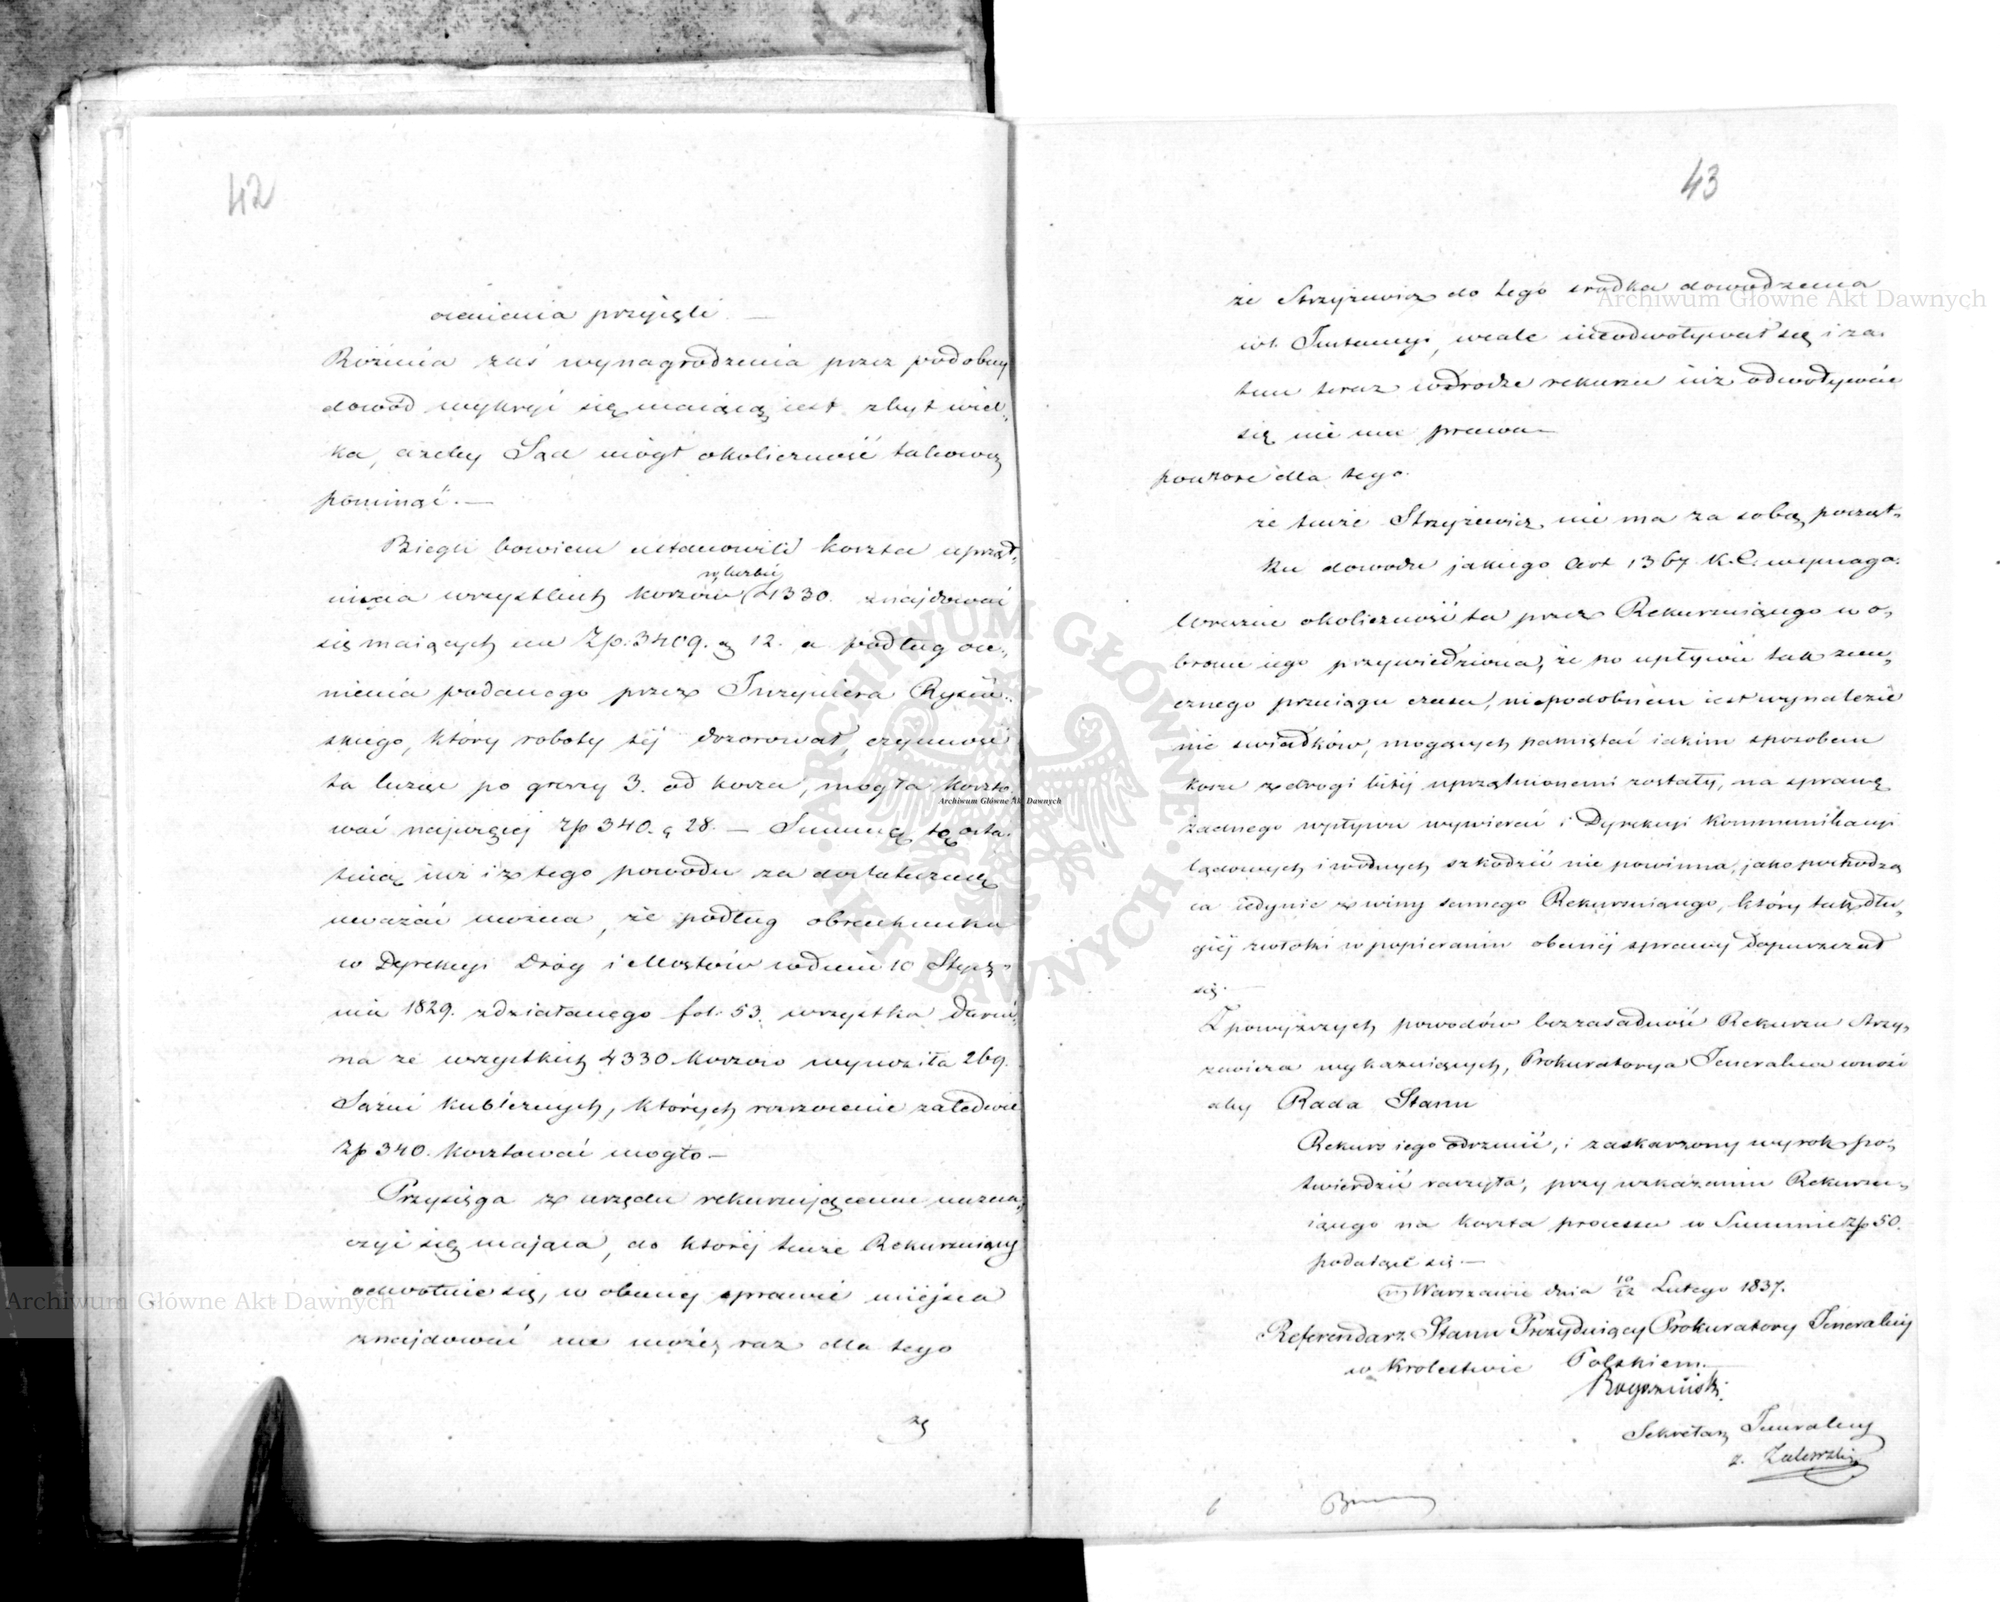 42
ocenienia przyięli. —
Różnica zaś wynagrodzenia przez podobny
dowód wykryć się maiącą iest zbyt wiel-
ka, ażeby Sąd mógł okoliczność takową
pominąć. —
Biegli bowiem ustanowili koszta uprząt-
w liczbie
nięcia wszystkich korzów 4330. znajdować
się maiących na Złp. 3409. g 12. a podług oce-
nienia podanego przez Inżyniera
skiego, który roboty téj dozorował, czynność
ta licząc po groszy 3. od korza, mogła koszto-
wać najwięcéj Złp 340. g 28. — Summę tę osta-
tnią iuż i z tego powodu za dostateczną
uważać można, że podług obrachunku
w Dyrekcyi Dróg i Mostów w dniu 10 Stycz-
nia 1829. zdziałanego fol. 53. wszystka darni-
na ze wszystkich 4330 korzow wynosiła 269.
Sążni kubicznych, których rozrzucenie zaledwie
Złp 340. kosztować mogło —
Przysięga z urzędu rekurruiącemu nazna-
czyć się mająca, do któréj tenże Rekurruiący
odwołuie się, w obecnéj sprawie miéjsca
znajdować nie może, raz dla tego
że
Archiwum Główne Akt Dawnych
43
że Strzyżewicz do tego srodka dowodzenia
w I. Instancyi, wcale nieodwoływał się i za-
tem teraz wdrodze rekursu iuż odwoływać
się nie ma prawa —
powtore dla tego.
że tenże Strzyżewicz nie ma za sobą począt-
ku dowodu jakiego Art 1367 K. C. wymaga.
Wreszcie okoliczność ta przez Rekurruiącego w o-
bronie iego przywiedziona, że po upływie tak zna-
cznego przeciągu czasu, niepodobném iest wynaleźie-
nie swiadków, mogących pamiętać iakim sposobem
korze z drogi bitéj uprzątnionemi zostały, na sprawę
żadnego wpływu wywierać i Dyrekcyi Kommunikacyi
lądowych i wodnych szkodzić nie powinna, jako pochodzą-
ca iedynie z winy samego Rekurruiącego, który tak dłu-
giéj zwłoki w popieraniu obecnéj sprawy dopuszczał
się. —
Z powyższych powodów bezzasadność Rekursu Strzy-
żewicza wykazuiących, Prokuratorya Jeneralna wnosi
aby Rada Stanu
Rekurs iego odrzucić, i zaskarżony wyrok po-
twierdzić raczyła, przy wskazaniu Rekurru-
iącego na koszta processu w Summie złp 50.
podatąd się —
w Warszawie dnia 10/22 Lutego 1837.
Referendarz Stanu Prezyduiący Prokuratoryi Jeneralnéj
w Królestwie Polskiem.
Sekretarz Jeneralny
z. Zalewski
6
Archiwum Główne Akt Dawnych
Archiwum Główne Akt Dawnych
ARCHIWUM GŁÓWNE · AKT DAWNYCH ·